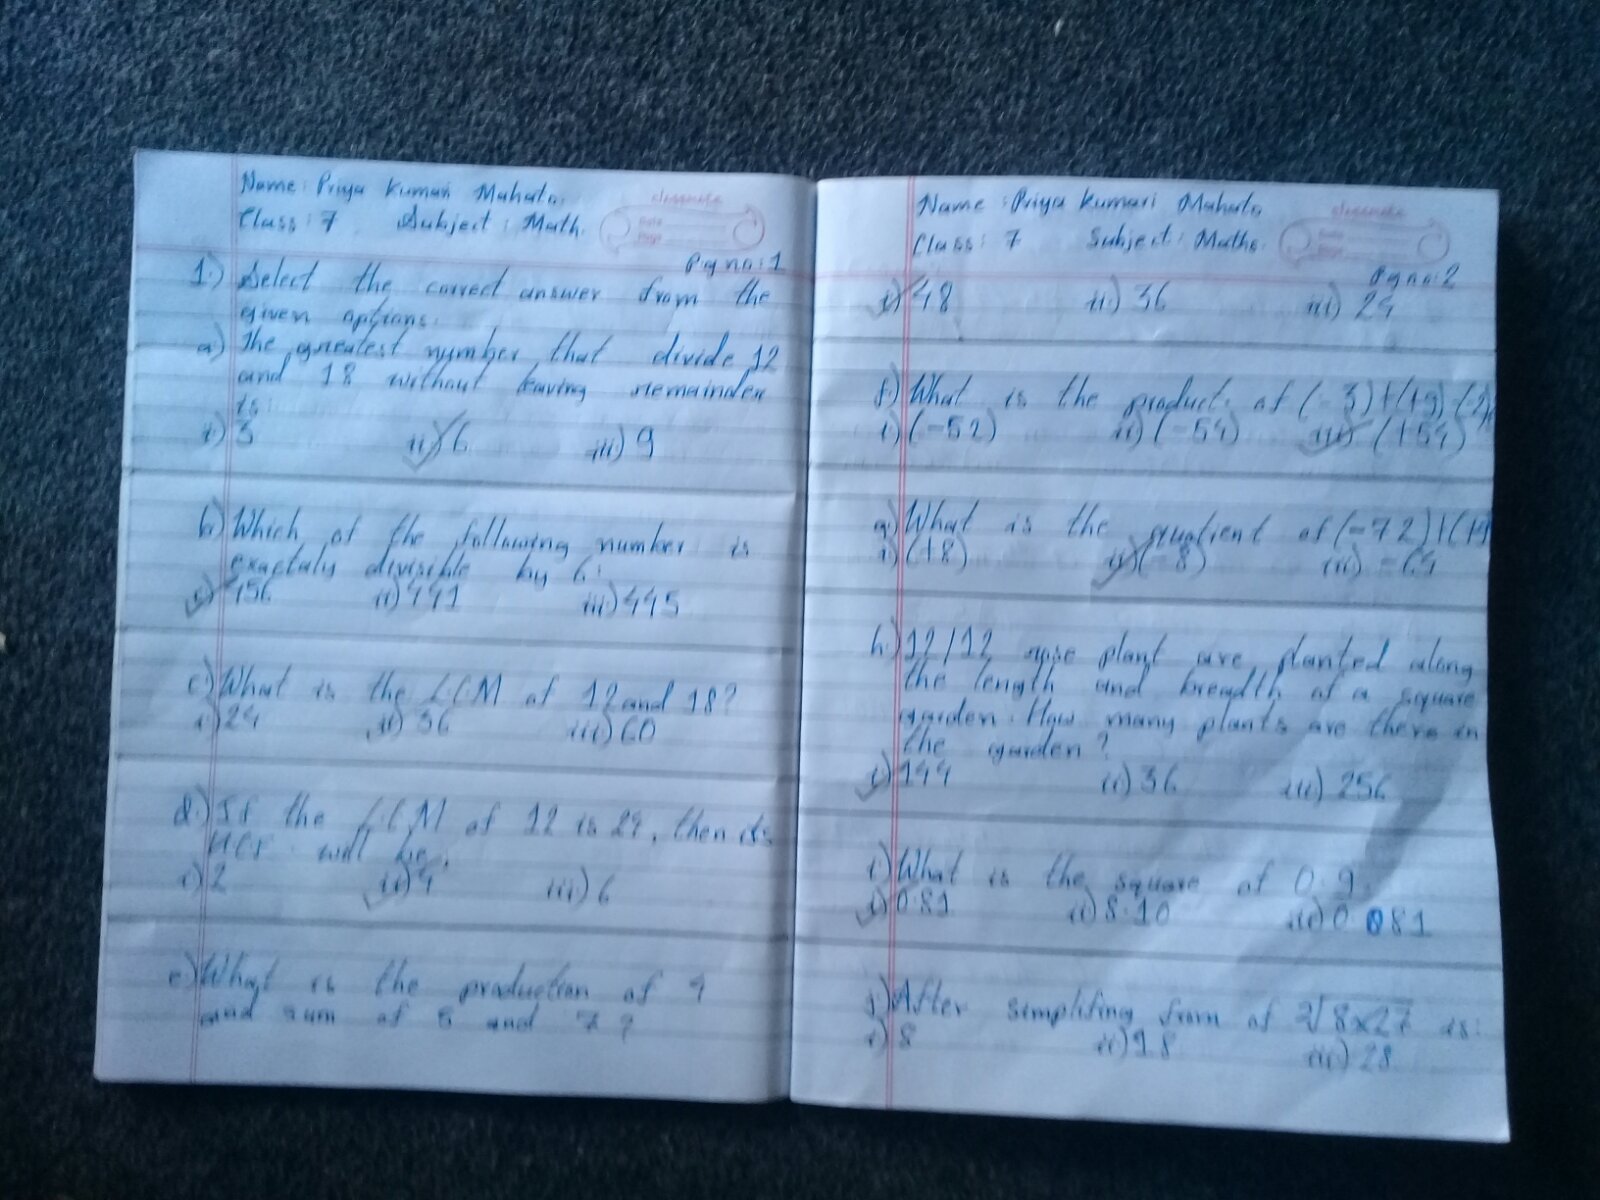 Name: Priya Kumari Mahato.
Class: 7 Subject: Math.
classmate
Date
Page
Pg no: 1
1.) Select the correct answer from the
given options.
a.) The greatest number that divide 12
and 18 without leaving remainder
is:
i) 3 ii) 6 iii) 9
b.) Which of the following number is
exactaly divisible by 6:
i) 456 ii) 441 iii) 445
c.) What is the LCM of 12 and 18?
i) 24 ii) 36 iii) 60
d.) If the LCM of 12 is 24, then its
HCF will be.
i) 2 ii) 4 iii) 6
e) What is the production of 4
and sum of 5 and 7?
Name: Priya Kumari Mahato
Class: 7 Subject: Maths.
classmate
Date
Page
Pg no: 2
i) 48 ii) 36 iii) 24
f.) What is the product of (-3)+(+9)
i) (-52) ii) (-54) iii) (+54)
g.) What is the quotient of (-72)
i) (+8) ii) (-8) iii) -64
h.) 12/12 rose plant are planted along
the length and breadth of a square
garden. How many plants are there in
the garden?
i) 144 ii) 36 iii) 256
i) What is the square of 0.9.
i) 0.81 ii) 8.10 iii) 0.081
j) After simplifing from of ∛8×27 is:
i) 8 ii) 18 iii) 28